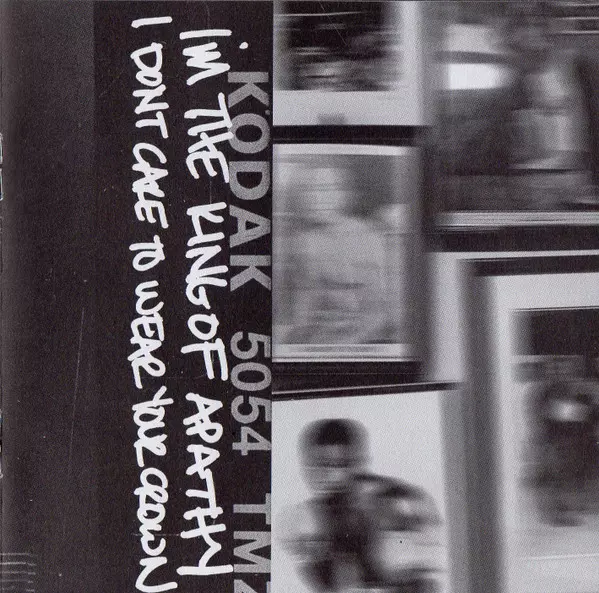 KODAK 5054 TMZ
I'M THE KING OF APATHY
I DON'T CARE TO WEAR YOUR CROWN